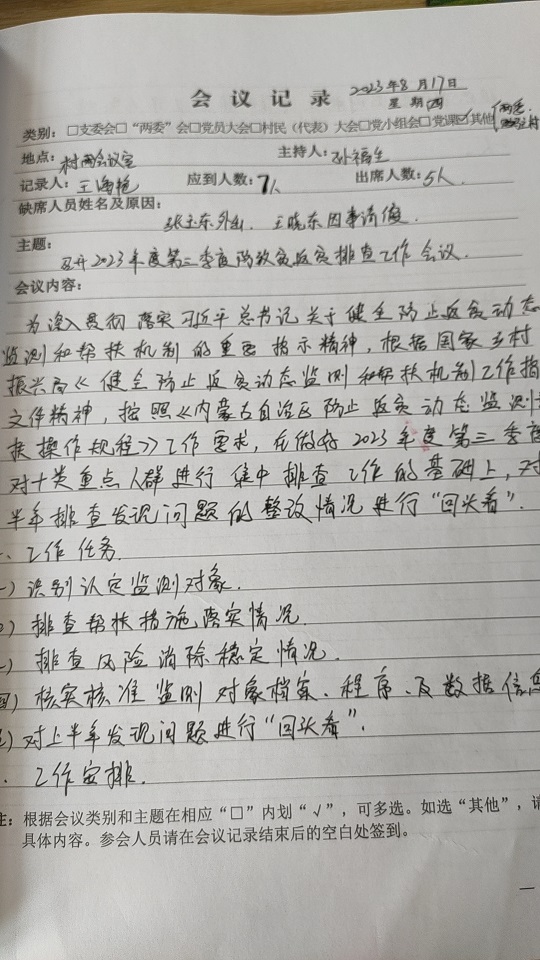 会议记录 2023年8月17日
星期四
类别：□支委会□“两委”会□党员大会□村民（代表）大会□党小组会□党课☑其他（两委
地点：村两会议室 主持人：孙福生
记录人：王海艳 应到人数：7人 出席人数：5人
缺席人员姓名及原因：
张玉东外出、王晓东因事请假
主题：
召开2023年度第三季度防致贫返贫排查工作会议.
会议内容：
为深入贯彻落实习近平总书记关于健全防止返贫动态
监测和帮扶机制的重要指示精神，根据国家乡村
振兴局《健全防止返贫动态监测和帮扶机制工作指
文件精神，按照《内蒙古自治区防止返贫动态监测
扶操作规程》工作要求，在做好2023年度第三季度
对十类重点人群进行集中排查工作的基础上，对
半年排查发现问题的整改情况进行“回头看”.
、工作任务
）识别认定监测对象.
）排查帮扶措施落实情况.
）排查风险消除稳定情况.
四）核实核准监测对象档案、程序、及数据信息
）对上半年发现问题进行“回头看”.
、工作安排.
注：根据会议类别和主题在相应“□”内划“√”，可多选。如选“其他”，请
具体内容。参会人员请在会议记录结束后的空白处签到。